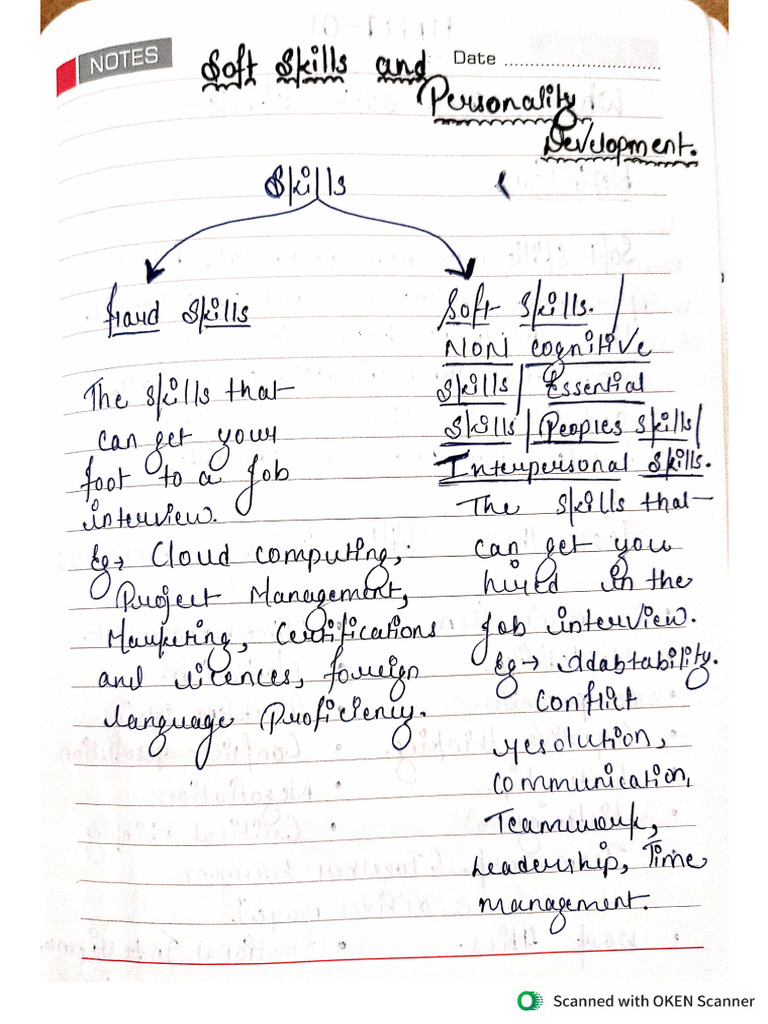 NOTES
Date
Soft Skills and
Personality
Development.
Skills
Hard Skills
The skills that
can get your
foot to a job
interview.
Eg → Cloud computing,
Project Management,
Marketing, Certifications
and licences, foreign
language Proficiency.
Soft Skills. /
NON cognitive
Skills / Essential
Skills / Peoples skills /
Interpersonal Skills.
The skills that
can get you
hired in the
job interview.
Eg → Adabtability.
Conflict
resolution,
communication,
Teamwork,
Leadership, Time
management.
Scanned with OKEN Scanner